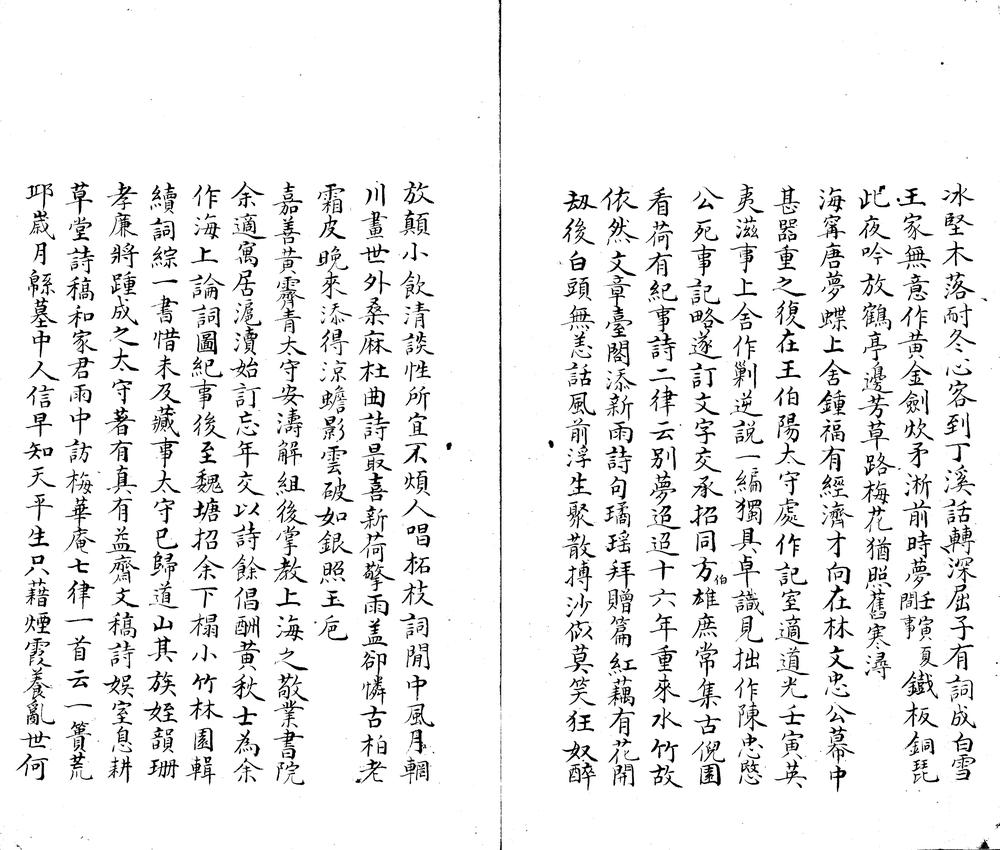 冰堅木落耐冬心客到丁溪話轉深屈子有詞成白雪
王家無意作黃金劍炊矛淅前時夢壬寅夏間事鐵板銅琵
此夜吟放鶴亭邊芳草路梅花猶照舊寒潯
海寧唐夢蝶上舍鍾福有經濟才向在林文忠公幕中
甚器重之復在王伯陽太守處作記室適道光壬寅英
夷滋事上舍作剿逆說一編獨具卓識見拙作陳忠愍
公死事記略遂訂文字交承招同方伯雄庶常集古倪園
看荷有紀事詩二律云別夢迢迢十六年重來水竹故
依然文章臺閣添新雨詩句璚瑤拜贈篇紅藕有花開
劫後白頭無恙話風前浮生聚散摶沙似莫笑狂奴醉
放顛小飲清談性所宜不煩人唱柘枝詞閒中風月輞
川畫世外桑麻杜曲詩最喜新荷擎雨蓋卻憐古柏老
霜皮晚來添得涼蟾影雲破如銀照玉卮
嘉善黃霽青太守安濤解組後掌教上海之敬業書院
余適寓居滬瀆始訂忘年交以詩餘倡酬黃秋士為余
作海上論詞圖紀事後至魏塘招余下榻小竹林園輯
續詞綜一書惜未及藏事太守已歸道山其族姪韻珊
孝廉將踵成之太守著有真有益齋文稿詩娛室息耕
草堂詩稿和家君雨中訪梅華庵七律一首云一簣荒
邱歲月緜墓中人信早知天平生只藉煙霞養亂世何